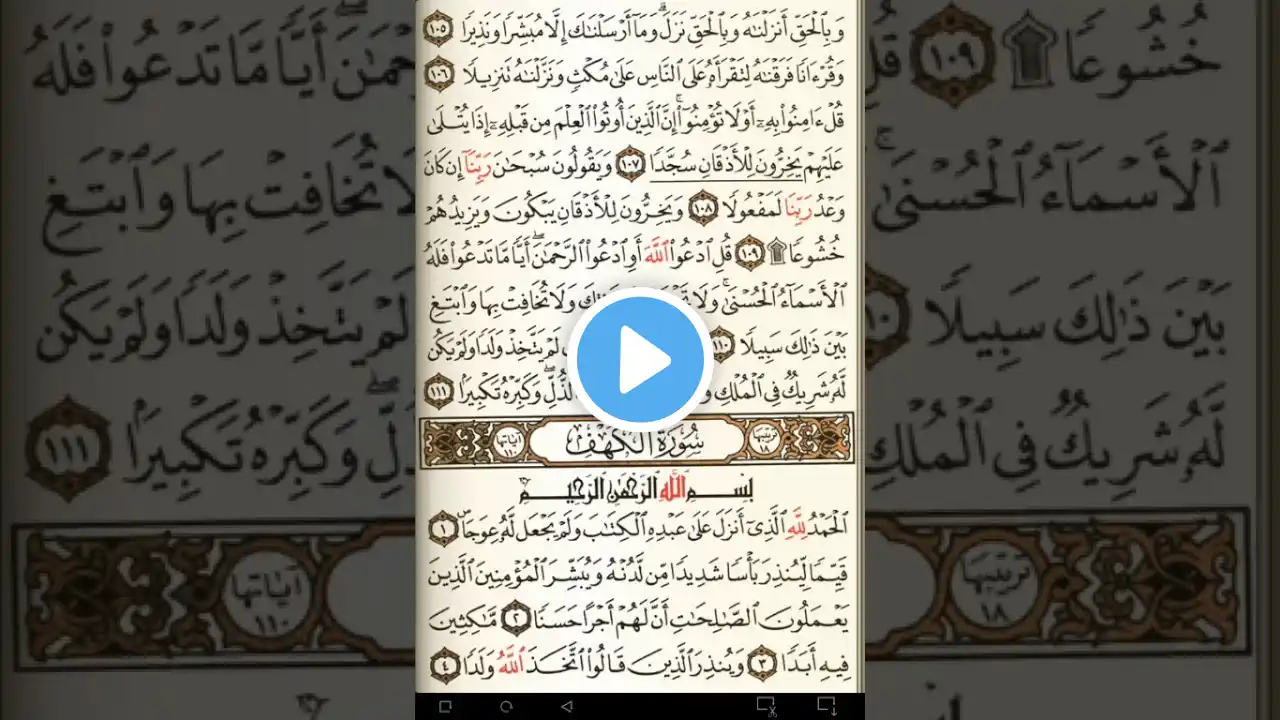 وَبِٱلْحَقِّ أَنزَلْنَٰهُ وَبِٱلْحَقِّ نَزَلَ ۗ وَمَآ أَرْسَلْنَٰكَ إِلَّا مُبَشِّرًا وَنَذِيرًا ١٠٥
وَقُرْءَانًا فَرَقْنَٰهُ لِتَقْرَأَهُۥ عَلَى ٱلنَّاسِ عَلَىٰ مُكْثٍ وَنَزَّلْنَٰهُ تَنزِيلًا ١٠٦
قُلْ ءَامِنُوا۟ بِهِۦٓ أَوْ لَا تُؤْمِنُوٓا۟ ۚ إِنَّ ٱلَّذِينَ أُوتُوا۟ ٱلْعِلْمَ مِن قَبْلِهِۦٓ إِذَا يُتْلَىٰ
عَلَيْهِمْ يَخِرُّونَ لِلْأَذْقَانِ سُجَّدًا ١٠٧ وَيَقُولُونَ سُبْحَٰنَ رَبِّنَآ إِن كَانَ
وَعْدُ رَبِّنَا لَمَفْعُولًا ١٠٨ وَيَخِرُّونَ لِلْأَذْقَانِ يَبْكُونَ وَيَزِيدُهُمْ
خُشُوعًا ۩ ١٠٩ قُلِ ٱدْعُوا۟ ٱللَّهَ أَوِ ٱدْعُوا۟ ٱلرَّحْمَٰنَ ۖ أَيًّا مَّا تَدْعُوا۟ فَلَهُ
ٱلْأَسْمَآءُ ٱلْحُسْنَىٰ ۚ وَلَا وَلَا تُخَافِتْ بِهَا وَٱبْتَغِ
بَيْنَ ذَٰلِكَ سَبِيلًا ١١٠ لَمْ يَتَّخِذْ وَلَدًا وَلَمْ يَكُن
لَّهُۥ شَرِيكٌ فِى ٱلْمُلْكِ ٱلذُّلِّ ۖ وَكَبِّرْهُ تَكْبِيرًۢا ١١١
ترتيبها ١٨ سُورَةُ الكَهْفِ آياتها ١١٠
بِسْمِ ٱللَّهِ ٱلرَّحْمَٰنِ ٱلرَّحِيمِ
ٱلْحَمْدُ لِلَّهِ ٱلَّذِىٓ أَنزَلَ عَلَىٰ عَبْدِهِ ٱلْكِتَٰبَ وَلَمْ يَجْعَل لَّهُۥ عِوَجَا ۜ ١
قَيِّمًا لِّيُنذِرَ بَأْسًا شَدِيدًا مِّن لَّدُنْهُ وَيُبَشِّرَ ٱلْمُؤْمِنِينَ ٱلَّذِينَ
يَعْمَلُونَ ٱلصَّٰلِحَٰتِ أَنَّ لَهُمْ أَجْرًا حَسَنًا ٢ مَّٰكِثِينَ
فِيهِ أَبَدًا ٣ وَيُنذِرَ ٱلَّذِينَ قَالُوا۟ ٱتَّخَذَ ٱللَّهُ وَلَدًا ٤